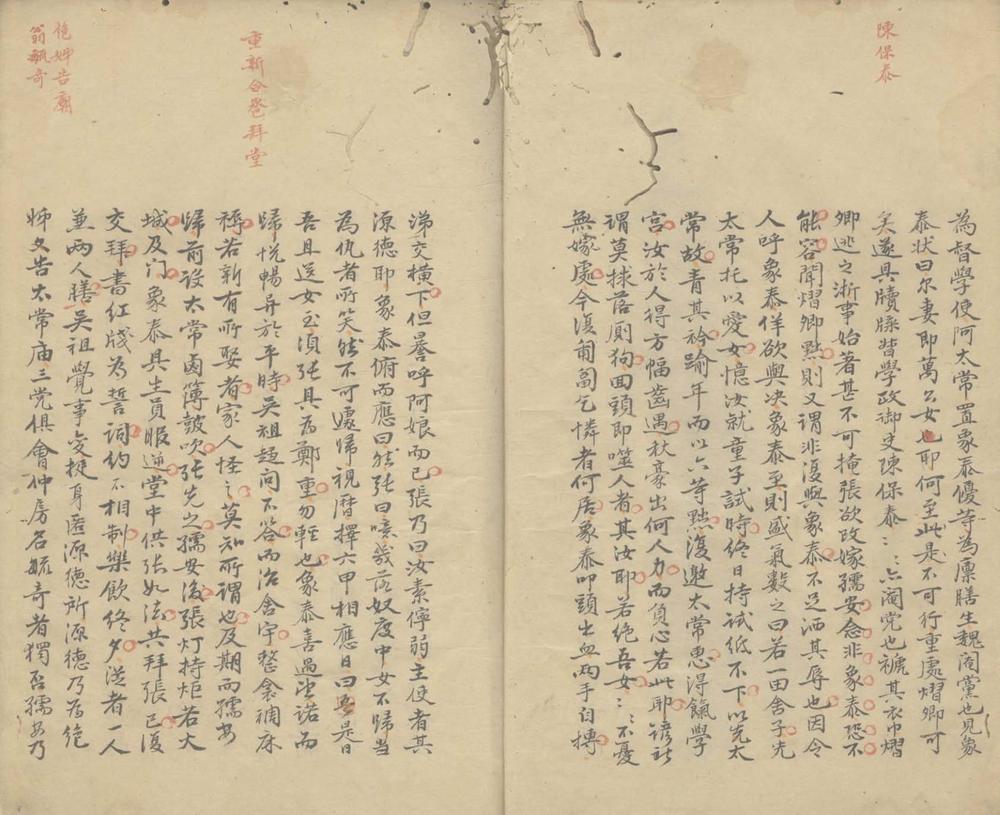 陳保泰
為督學使阿太常置象泰優等為廩膳生魏閹黨也見象
泰状曰尔妻即萬公女也耶何至此是不可行重處熠卿可
矣遂具牘牒督學政御史陳保泰〻〻亦閹党也褫其衣巾熠
卿逃之浙事始著甚不可掩張欲改嫁孺安念非象泰恐不
能容聞熠卿黜則又謂非復與象泰不足洒其辱也因令
人呼象泰佯欲與决象泰至則盛氣數之曰若一田舍子先
太常托以愛女憶汝就童子試時終日持試纸不下以先太
常故青其衿踰年而以六等黜復邀太常惠得餼學
宫汝於人得方幅齒遇秋豪出何人力而負心若此耶諺秕
謂莫捄落厠狗回頭即噬人者其汝耶若绝吾女〻〻不憂
無嫁處今復匍匐乞憐者何居象泰叩頭出血两手自摶
涕交橫下但㬥呼阿娘而已張乃曰汝素儜弱主使者其
源德耶象泰俯而應曰然張曰嘻幾落奴度中女不歸當
為仇者所笑然不可遽歸視曆擇六甲相應日曰某是日
吾且送女至湏張具為鄭重勿輕也象泰喜過望诺而
歸悅暢异於平時吴祖趋问不答而治舍宇整衾裯床
褥若新有所娶者家人怪之莫知所謂也及期而孺安
歸前设太常鹵簿皷吹張先之孺安後張灯持炬若大
城及门象泰具生員服迎堂中供張如法共拜張已復
交拜書红牋為誓詞约不相制樂飲終夕送者一人
並两人膳吴祖覺事变挺身匿源德所源德乃為绝
婦文告太常庙三党俱會仲房名毓奇者獨否孺安乃
重新合巹拜堂
绝婦告廟
翁毓奇